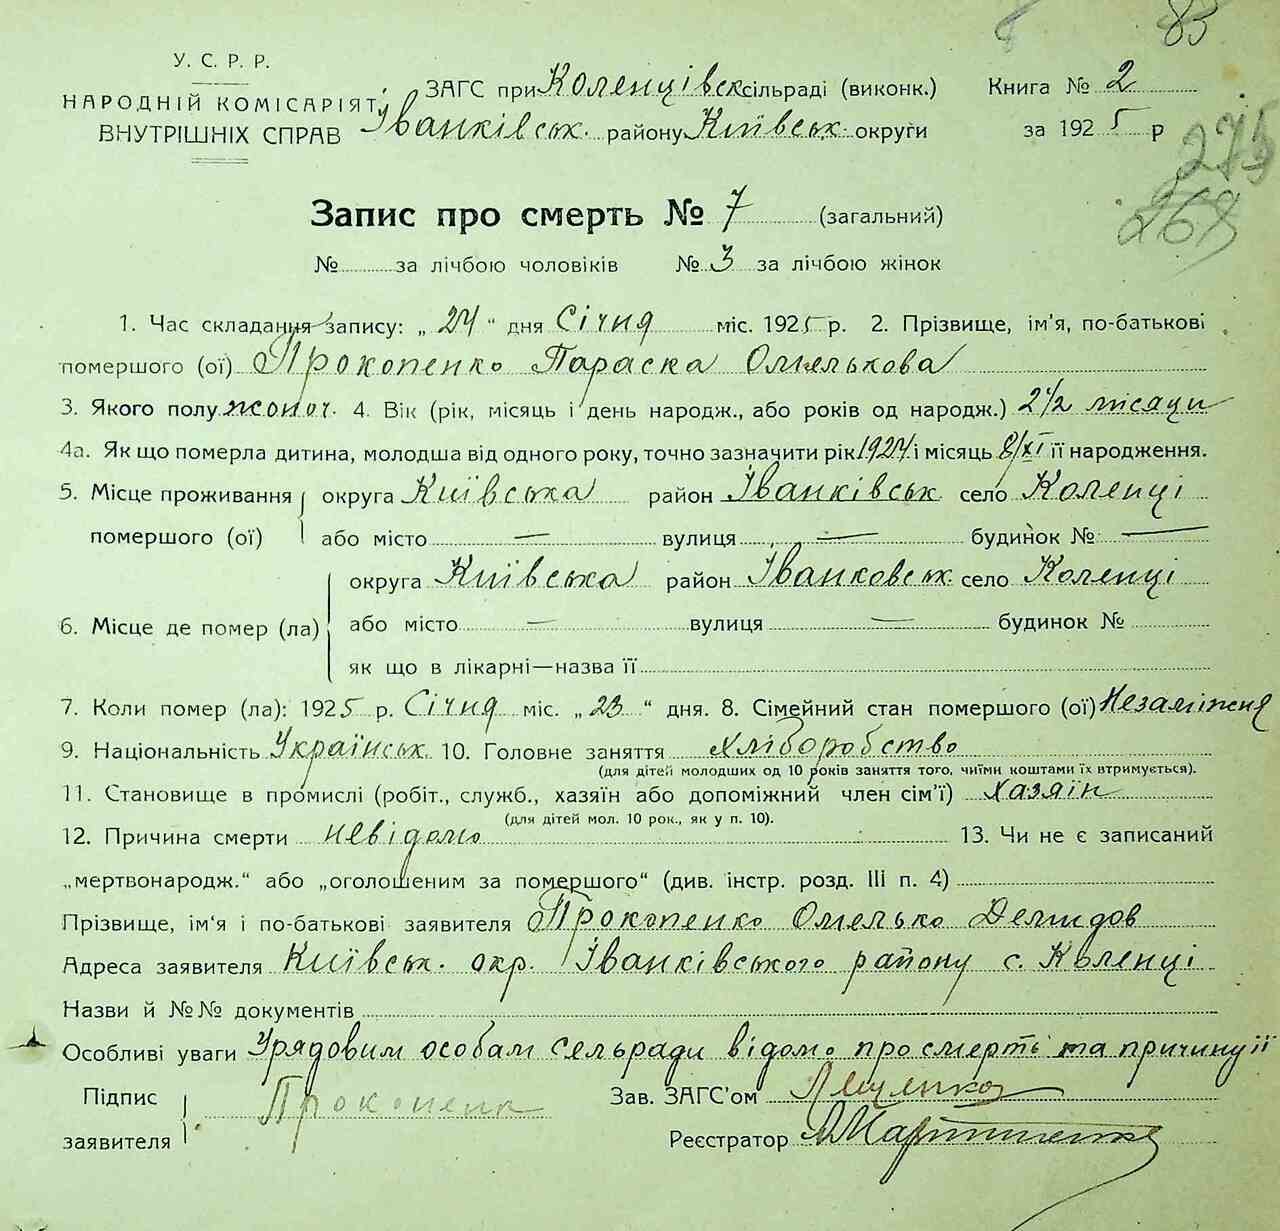 83
У. С. Р. Р.
НАРОДНІЙ КОМІСАРІЯТ
ВНУТРІШНІХ СПРАВ
ЗАГС при Коленцівск сільраді (виконк.) Книга № 2
Іванківськ. району Київськ. округи за 1925 р
275
268
Запис про смерть № 7 (загальний)
№ за лічбою чоловіків № 3 за лічбою жінок
1. Час складання запису: „ 24 “ дня Січня міс. 1925 р. 2. Прізвище, ім'я, по-батькові
помершого (ої) Прокопенко Параска Омелькова
3. Якого полу жоноч. 4. Вік (рік, місяць і день народж., або років од народж.) 2 1/2 місяци
4а. Як що померла дитина, молодша від одного року, точно зазначити рік 1924 і місяць 8/XI її народження.
5. Місце проживання округа Київська район Іванківськ село Коленці
помершого (ої) або місто — вулиця — будинок № —
округа Київська район Іванковськ. село Коленці
6. Місце де помер (ла) або місто — вулиця — будинок №
як що в лікарні—назва її
7. Коли помер (ла): 1925 р. Січня міс. „ 23 “ дня. 8. Сімейний стан помершого (ої) Незаміжня
9. Національність Українськ. 10. Головне заняття хліборобство
(для дітей молодших од 10 років заняття того, чиїми коштами їх втримується).
11. Становище в промислі (робіт., служб., хазяїн або допоміжний член сім'ї) хазяін
(для дітей мол. 10 рок., як у п. 10).
12. Причина смерти невідомо 13. Чи не є записаний
„мертвонародж.“ або „оголошеним за помершого“ (див. інстр. розд. III п. 4)
Прізвище, ім'я і по-батькові заявителя Прокопенко Омелько Демидов
Адреса заявителя Київськ. окр. Іванківського району с. Коленці
Назви й №№ документів
Особливі уваги Урядовим особам сельради відомо про смерть та причину її
Підпис заявителя Прокопенк Зав. ЗАГС'ом Лещенко
Реєстратор